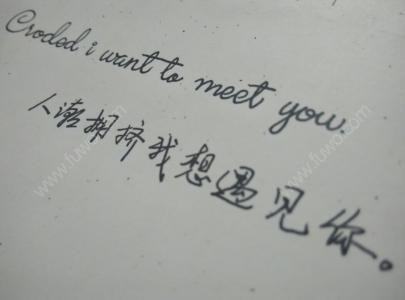 Croded i want to meet you.
人潮拥挤我想遇见你。
www.fuwo.com
www.fuwo.com
www.fuwo.com